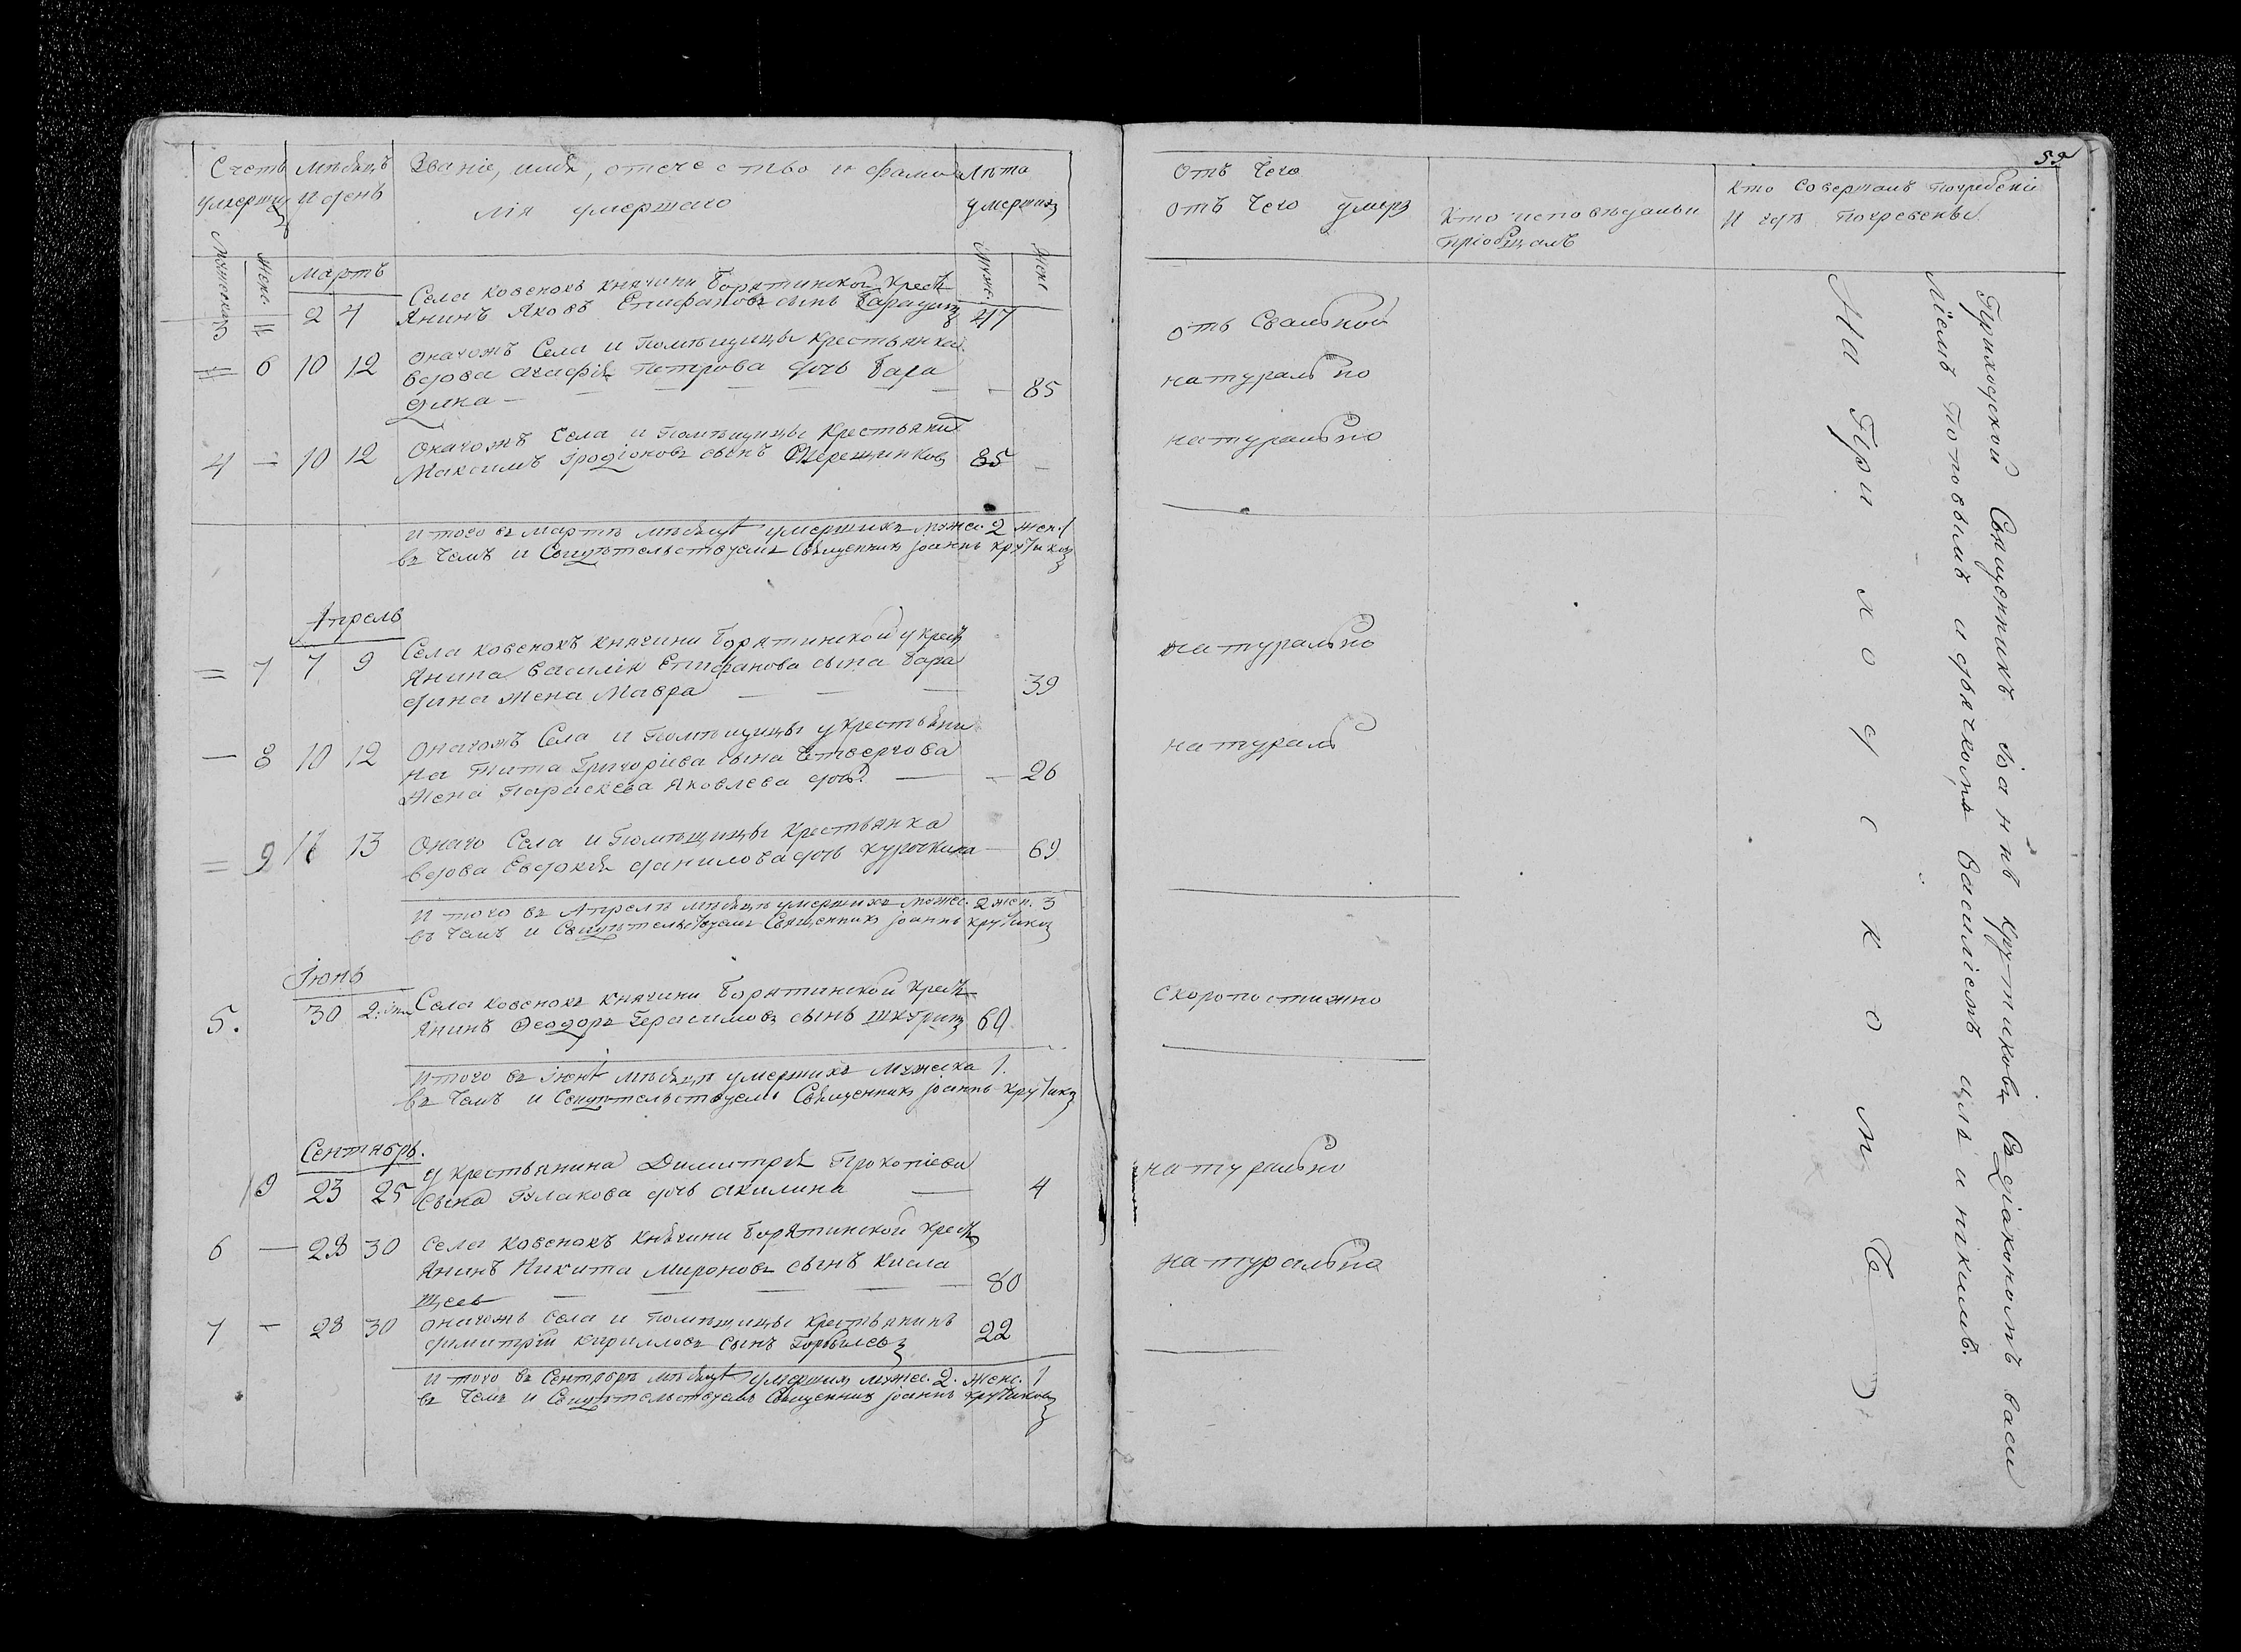 Счетъ умерши
Мѣсяцъ и день
Званіе, имя, отечество и фами
лія умершаго
Лѣта умершихъ
Мужескаго
Женс.
Мужес.
Женс
Мартъ
3 = 2 4 Села Ковенокъ Княгини Борятинской крестъ
янинъ Яковъ Епифановъ сынъ Барадинъ 47
= 6 10 12 Онагожъ Села и Помѣщицы крестьянка
вдова Агафія Петрова дочь Бара
дина — — 85
4 — 10 12 Онагожъ Села и Помѣщицы крестьянинъ
Максимъ Іродіоновъ сынъ 85 —
И того въ мартѣ мѣсяцѣ умершихъ мужес. 2 жен. 1
въ чемъ и Свидѣтельствуемъ Священникъ Іоаннъ Крутиковъ
Апрель
= 7 7 9 Села Ковенокъ Княгини Борятинской у крестъ
янина Василія Епифанова сына Бара
дина жена Мавра — — — 39
— 8 10 12 Онагожъ Села и Помѣщицы у крестьяни
на Тита Григоріева сына Четвергова
жена Параскева Яковлева дочь — — 26
= 9 11 13 Онаго Села и Помѣщицы крестьянка
вдова Евдокія Данилова дочь Курочкина — 69
И того въ Апрелѣ мѣсяцѣ умершихъ мужес. 2 жен. 3
въ чемъ и Свидѣтельствуемъ Священникъ Іоаннъ Крутиковъ
Іюнь
5. 30 2. Села Ковенокъ Княгини Борятинской крестъ
янинъ Феодоръ Герасимовъ сынъ 60
И того въ Іюнѣ мѣсяцѣ умершихъ мужеска 1.
въ чемъ и Свидѣтельствуемъ Священникъ Іоаннъ Крутиковъ
Сентябрь.
19 23 25 у крестьянина Димитрія Прокопіева
сына дочь Акилина — 4
6 — 28 30 Села Ковенокъ Княгини Борятинской крестъ
янинъ Никита Мироновъ сынъ Кисла
щеевъ — — — — 80
7 — 28 30 Онагожъ Села и Помѣщицы крестьянинъ
Димитрій Кириловъ сынъ 22
И того въ Сентябрѣ мѣсяцѣ умершихъ мужес. 2. женс. 1
въ чемъ и Свидѣтельствуемъ Священникъ Іоаннъ Крутиковъ
59
Отъ чего
отъ чего умеръ
Кто исповѣдалъ и
пріобщалъ
Кто Совершалъ Погребеніе
И гдѣ Погребены
отъ
натурально
натурально
натурально
натураль
скоропостижно
натурально
натурально
Приходской Священникъ Іоаннъ Крутиковъ Съ діакономъ Васи
ліемъ Поповымъ и дьячкомъ Василіемъ
На Приходскомъ